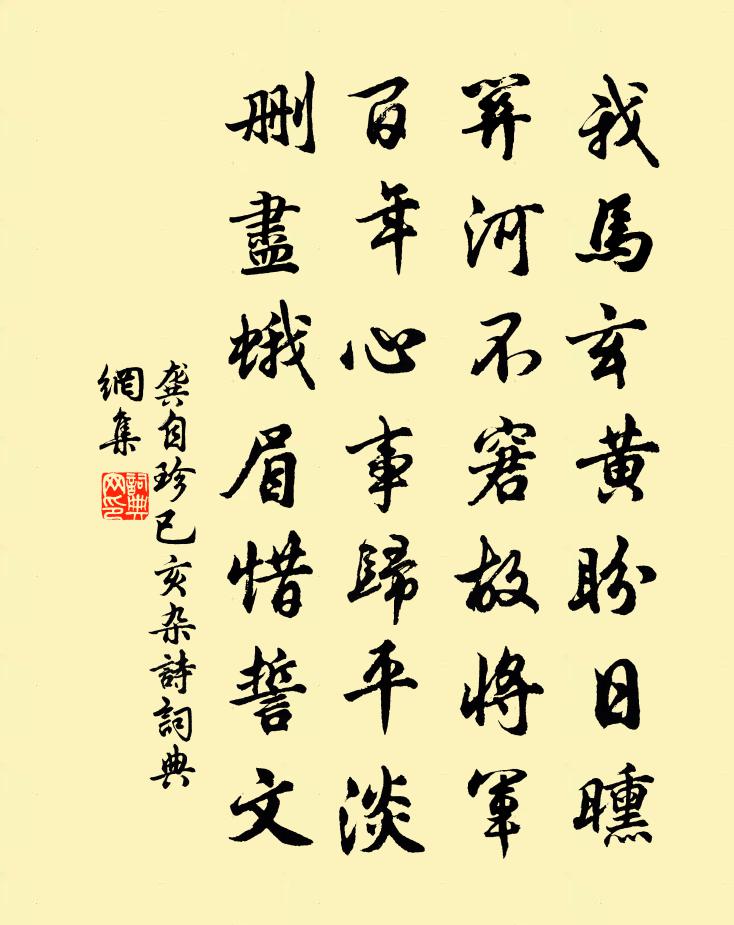 我馬玄黃盼日曛
關河不窘故將軍
百年心事歸平淡
删盡蛾眉惜誓文
龔自珍己亥杂詩詞典
網集
詞典网印